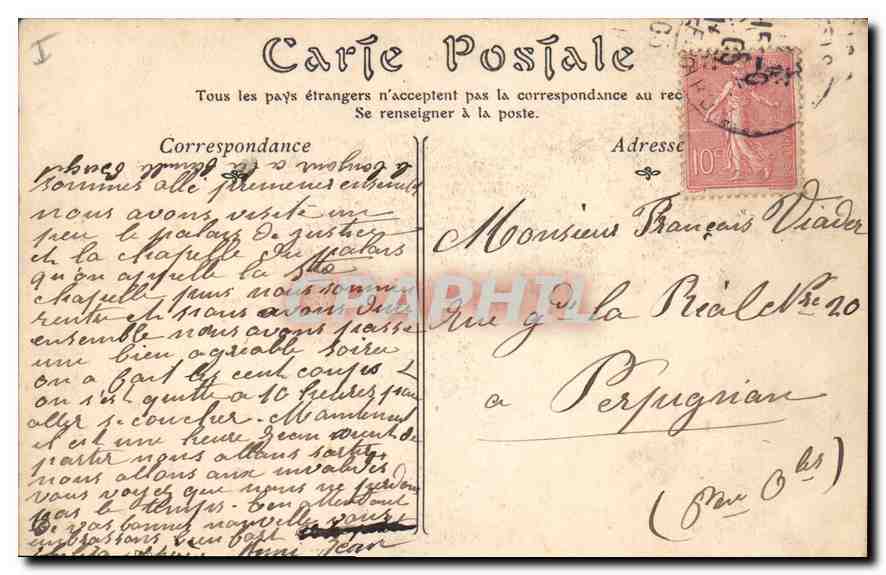 I
Carte Postale
Tous les pays étrangers n'acceptent pas la correspondance au rec
Se renseigner à la poste.
Correspondance
Adresse
10c
sommes allé promener ensemble
nous avons visité un
peu le palais de justice
et la chapelle du palais
qu'on appelle la Ste
chapelle puis nous sommes
rentré et nous avons diné
ensemble nous avons passé
une bien agréable soirée
on a fait les cent coups
on s'est quitté a 10 heures pour
aller se coucher. Maintenant
il est une heure Jean vient de
parter nous allons sortir
nous allons aux invalides
vous voyez que nous ne perdons
pas le temps. En attendant
de vos bonnes nouvelles vous
embrassons bien fort
Jean
Monsieur François Viader
Rue gde la Réal Nre 20
a Perpignan
(Pnées Oles)
CPAPHIL